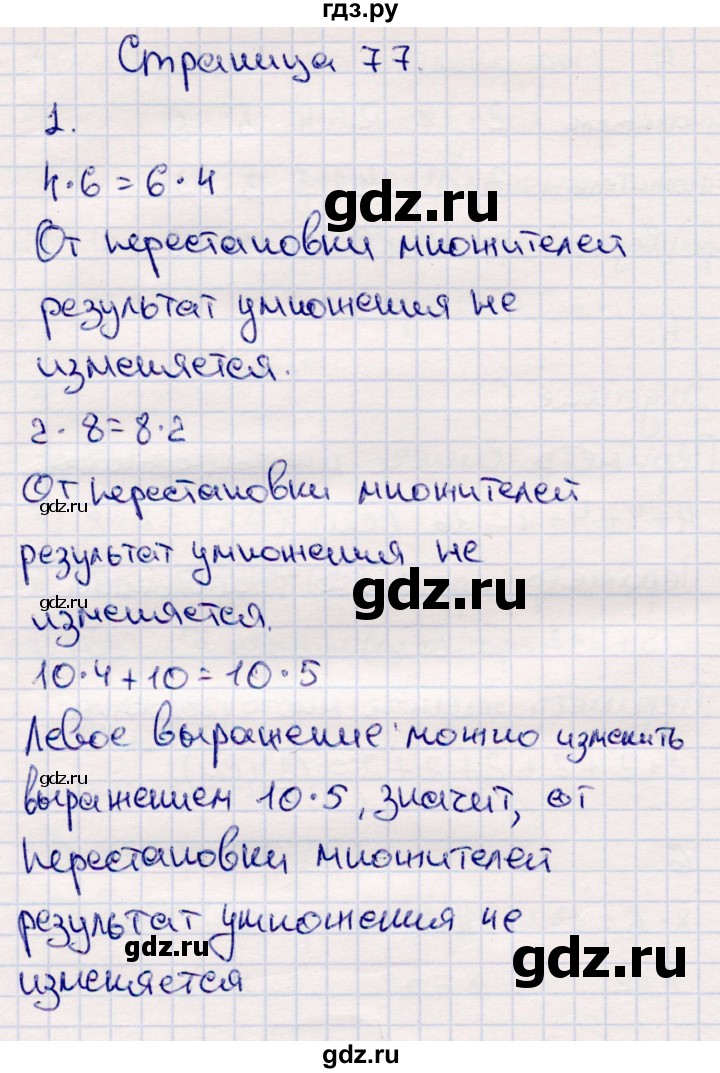 гдз.ру
Страница 77.
1.
4·6=6·4
gdz.ru
От перестановки множителей
результат умножения не
изменяется.
2·8=8·2
От перестановки множителей
gdz.ru
результат умножения не
gdz.ru
gdz.ru
изменяется.
10·4+10=10·5
Левое выражение можно изменить
gdz.ru
выражением 10·5, значит, от
перестановки множителей
результат умножения не
gdz.ru
gdz.ru
изменяется
gdz.ru